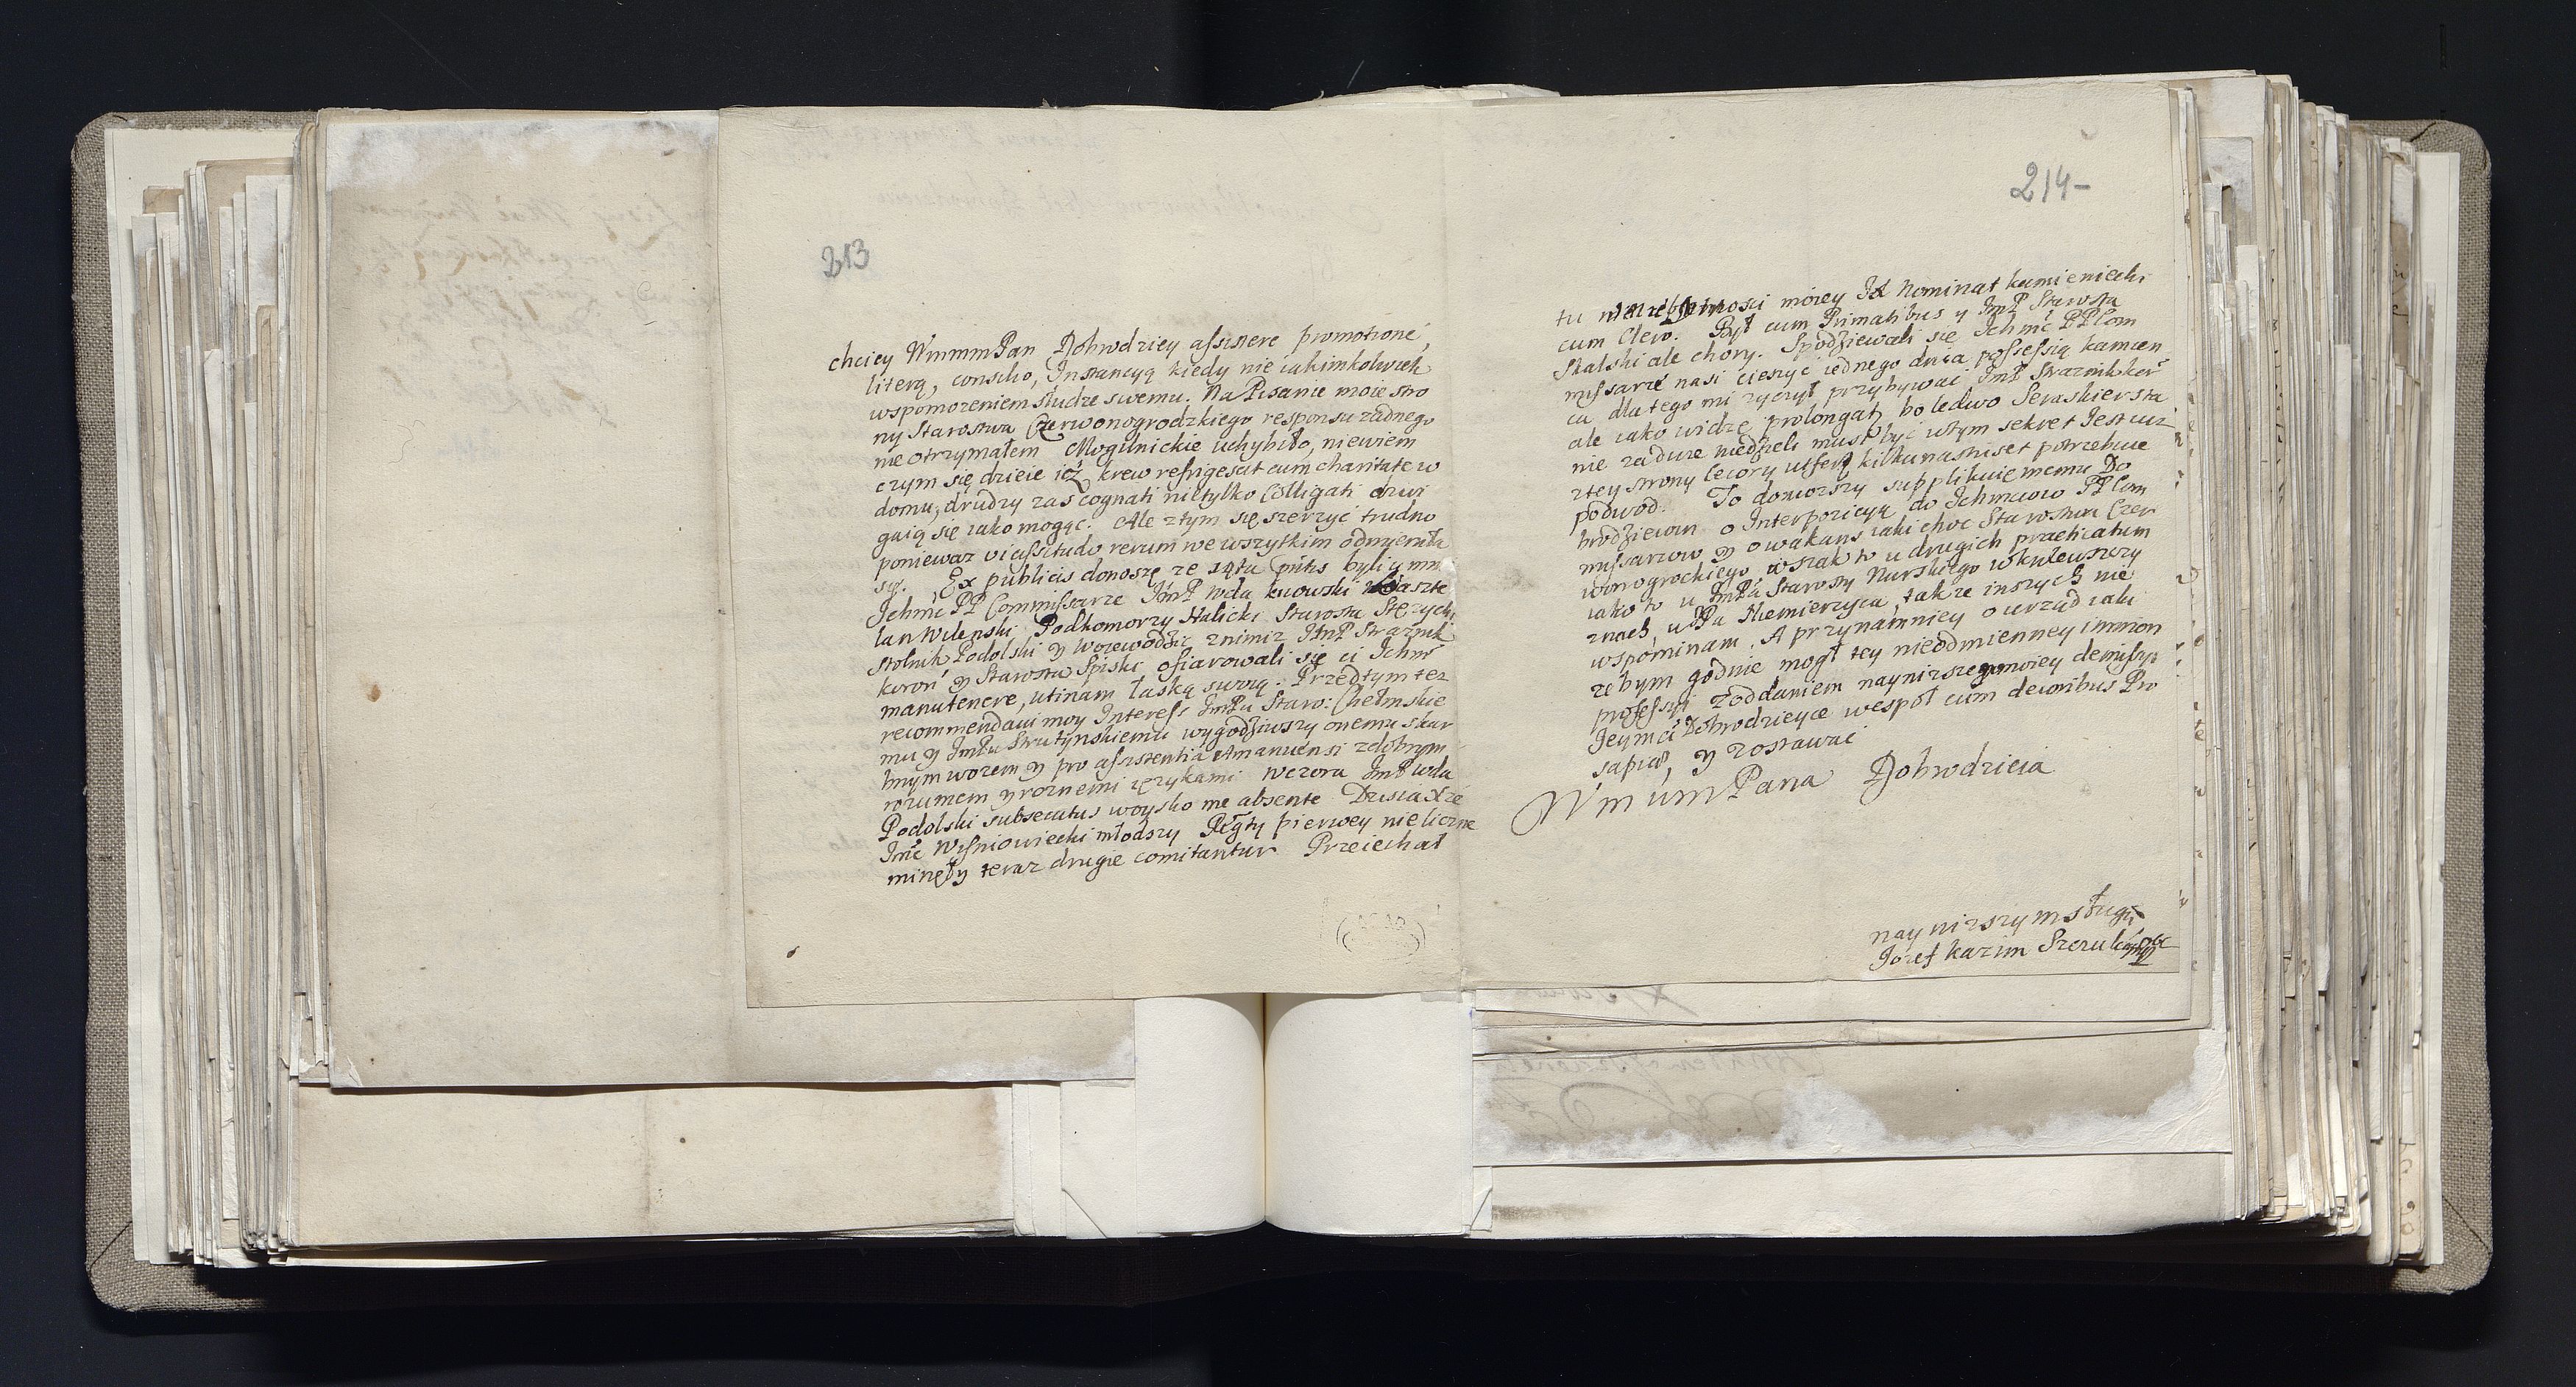 213
chciey WmmmPan Dobrodziey assistere promotione,
literą, consilio, Instancyą kiedy nie iakimkolwiek
wspomozeniem słudze swemu. Na Pisanie moie stro
ny Starostwa Czerwonogrodzkiego responsu zadnego
nie otrzymałem Mogilnickie uchybiło, niewiem
czym się dzieie iż krew refrigescit cum charitate w
domu, drudzy zas cognati nietylko Colligati dzwi
gaią się iako mogąc. Ale ztym się szerzyć trudno
poniewaz vicissitudo rerum we wszytkim odmieniła
się. Ex publicis donoszę ze są tu pntes byli u mn
Jchmc PP Commissarze JmP Wda kiiowski Kaszte
lan Wilenski Podkomorzy Halicki Starosta Stęzycki
Stolnik Podolski y Woiewodzic znimiz JmP Straznik
koron y Starosta Spiski ofiarowali się ci Jchmc
manutenere, utinam łaską swoią. Przedtym tez
recommendavi moy Interess JmPu Staro: Chełmskie
mu y JmPu Strutynskiemu wygodziwszy onemu skar
bnym wozem y pro assistentia Amanuensi zdobrym
rozumem y roznemi ięzykami. Wczora JmP Wda
Podolski subsecutus woysko me absente Dzisia Xże
Jmc Wisniowiecki młodszy Regty pierwey nieliczne
minęły teraz drugie comitantur Przeiechał
214-
tu nieobytnosci moiey JX Nominat kamieniecki
cum Clero. Był cum Primatibus y JmP Starosta
Skalski ale chory. Spodziewali się Jchmc PPCom
missarze nasi cieszyc iednego dnia possessią kamien
ca dla tego mi zyczył przybywac JmP Straznik kor
ale iako widzę prolongatę bo ledwo Seraskierska
nie za dwie niedzieli musi byc wtym sekret Jest iuz
ztey strony kilkunastuset potrzebuie
podwod. To doniozszy supplikuię memu Do
brodzieiowi o Interpozicyą do Jchmciow PPCom
missarzow y o wakans iaki choc Starostwa Czer
wonogrockiego, wszak to u drugich practicatum
iako to u JmPa Starosty Nurskiego w
znach, u Pa Niemierzyca, także inszych nie
wspominam. A przynamniey o urząd iaki
zebym godnie mogł tey nieodmienney immon
professyi zoddaniem nayniszey moiey demissyi
Jeymci Dobrodzieyce wespoł cum decoribus Pro
sapiæ, y zostawać
WmmmPana Dobrodzieia
nayniszym sługą
Jozef kazim